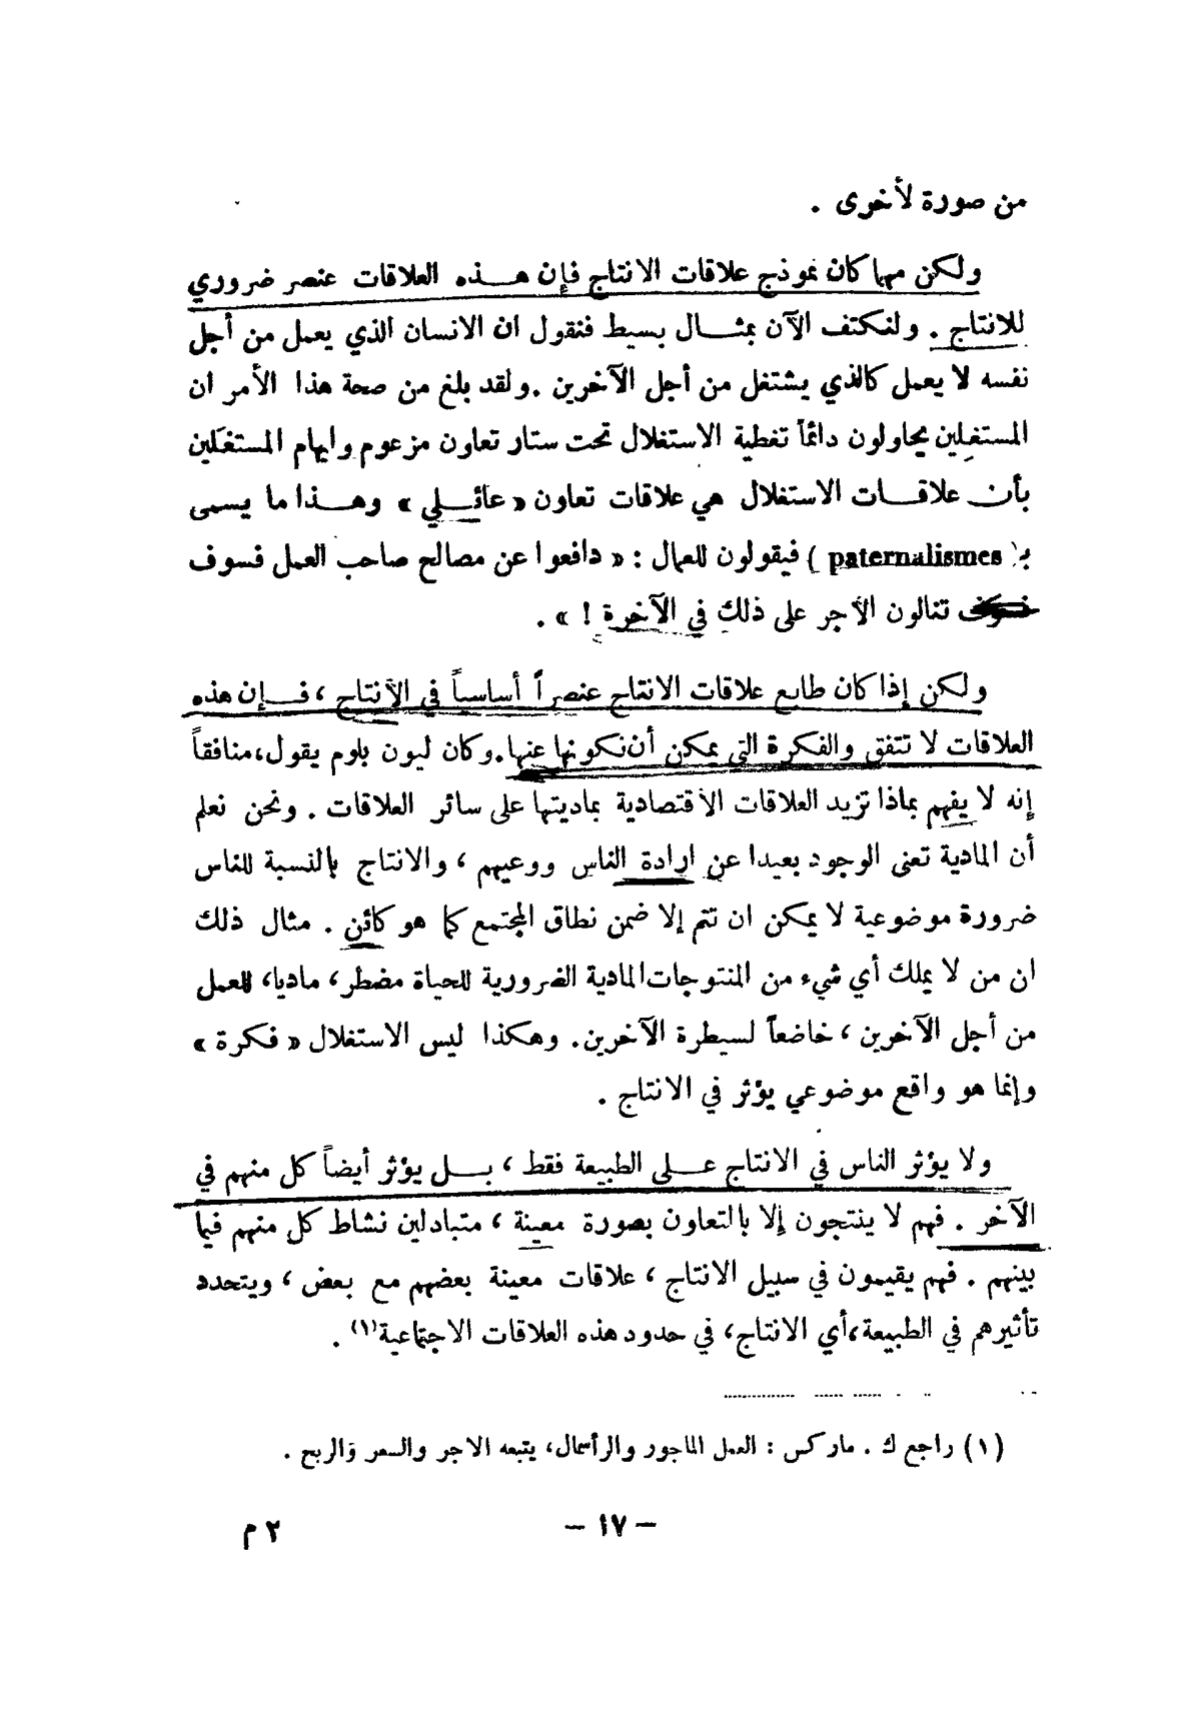 من صورة لأخرى .
ولكن مهما كان نموذج علاقات الانتاج فإن هـذه العلاقات عنصر ضروري
للانتاج . ولنكتف الآن بمثـال بسيط فنقول ان الانسان الذي يعمل من أجل
نفسه لا يعمل كالذي يشتغل من أجل الآخرين . ولقد بلغ من صحة هذا الأمر ان
المستغِلين يحاولون دائماً تغطية الاستغلال تحت ستار تعاون مزعوم وايهام المستغَلين
بأن علاقـات الاستغلال هي علاقات تعاون « عائـلي » وهـذا ما يسمى
بـ( paternalismes ) فيقولون للعمال : « دافعوا عن مصالح صاحب العمل فسوف
تنالون الأجر على ذلك في الآخرة ! » .
ولكن إذا كان طابع علاقات الانتاج عنصراً أساسياً في الانتاج ، فـإن هذه
العلاقات لا تتفق والفكرة التي يمكن أن نكونها عنها . وكان ليون بلوم يقول، منافقاً
إنه لا يفهم بماذا تزيد العلاقات الاقتصادية بماديتها على سائر العلاقات . ونحن نعلم
أن المادية تعنى الوجود بعيدا عن ارادة الناس ووعيهم ، والانتاج بالنسبة للناس
ضرورة موضوعية لا يمكن ان تتم إلا ضمن نطاق المجتمع كما هو كائن . مثال ذلك
ان من لا يملك أي شيء من المنتوجات المادية الضرورية للحياة مضطر، ماديا، للعمل
من أجل الآخرين ، خاضعاً لسيطرة الآخرين. وهكذا ليس الاستغلال « فكرة »
وإنما هو واقع موضوعي يؤثر في الانتاج .
ولا يؤثر الناس في الانتاج عـلى الطبيعة فقط ، بـل يؤثر أيضاً كل منهم في
الآخر . فهم لا ينتجون إلا بالتعاون بصورة معينة ، متبادلين نشاط كل منهم فيما
بينهم . فهم يقيمون في سبيل الانتاج ، علاقات معينة بعضهم مع بعض ، ويتحدد
تأثيرهم في الطبيعة، أي الانتاج، في حدود هذه العلاقات الاجتماعية(١) .
(١) راجع ك . ماركس : العمل المأجور والرأسمال، يتبعه الاجر والسعر والربح .
– ١٧ –
م ٢